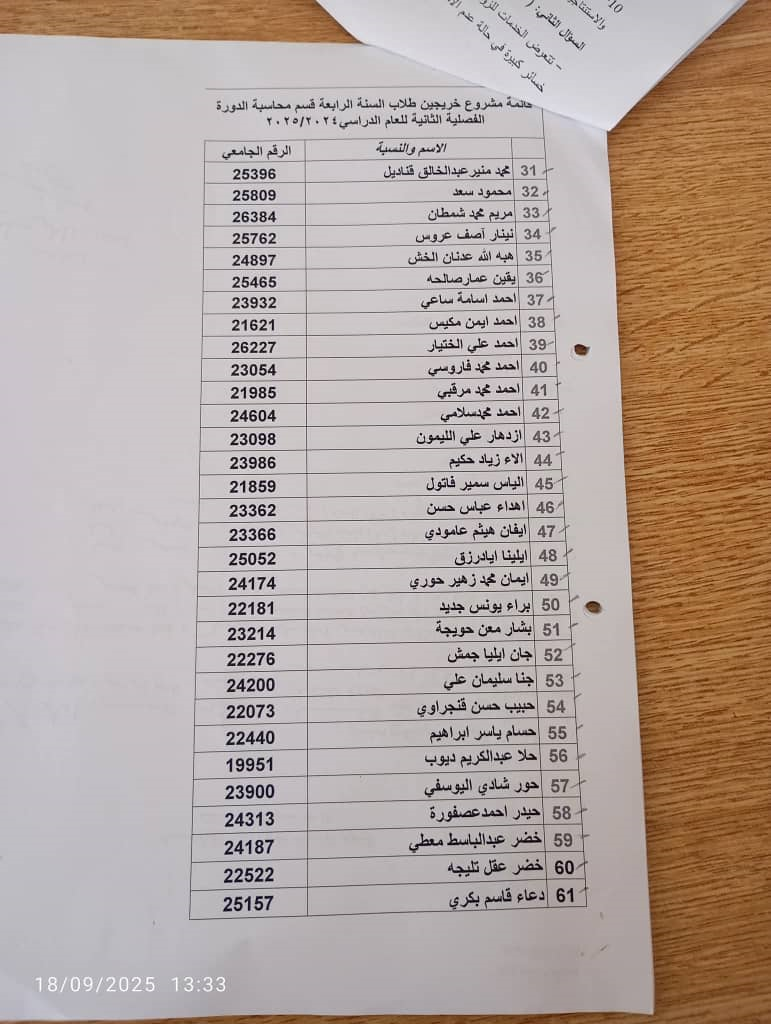 10
والاستنتاج
السؤال الثاني: (
- تتعرض الخدمات للزو
خسائر كبيرة في حالة عدم
قائمة مشروع خريجين طلاب السنة الرابعة قسم محاسبة الدورة
الفصلية الثانية للعام الدراسي ٢٠٢٥/٢٠٢٤
الاسم والنسبة الرقم الجامعي
31 محمد منير عبدالخالق قناديل 25396
32 محمود سعد 25809
33 مريم محمد شمطان 26384
34 نينار آصف عروس 25762
35 هبه الله عدنان الخش 24897
36 يقين عمارصالحه 25465
37 احمد اسامة ساعي 23932
38 احمد ايمن مكيس 21621
39 احمد علي الختيار 26227
40 احمد محمد فاروسي 23054
41 احمد محمد مرقبي 21985
42 احمد محمدسلامي 24604
43 ازدهار علي الليمون 23098
44 الاء زياد حكيم 23986
45 الياس سمير فاتول 21859
46 اهداء عباس حسن 23362
47 ايفان هيثم عامودي 23366
48 ايلينا ايادرزق 25052
49 ايمان محمد زهير حوري 24174
50 براء يونس جديد 22181
51 بشار معن حويجة 23214
52 جان ايليا جمش 22276
53 جنا سليمان علي 24200
54 حبيب حسن قنجراوي 22073
55 حسام ياسر ابراهيم 22440
56 حلا عبدالكريم ديوب 19951
57 حور شادي اليوسفي 23900
58 حيدر احمدعصفورة 24313
59 خضر عبدالباسط معطي 24187
60 خضر عقل تليجه 22522
61 دعاء قاسم بكري 25157
18/09/2025 13:33